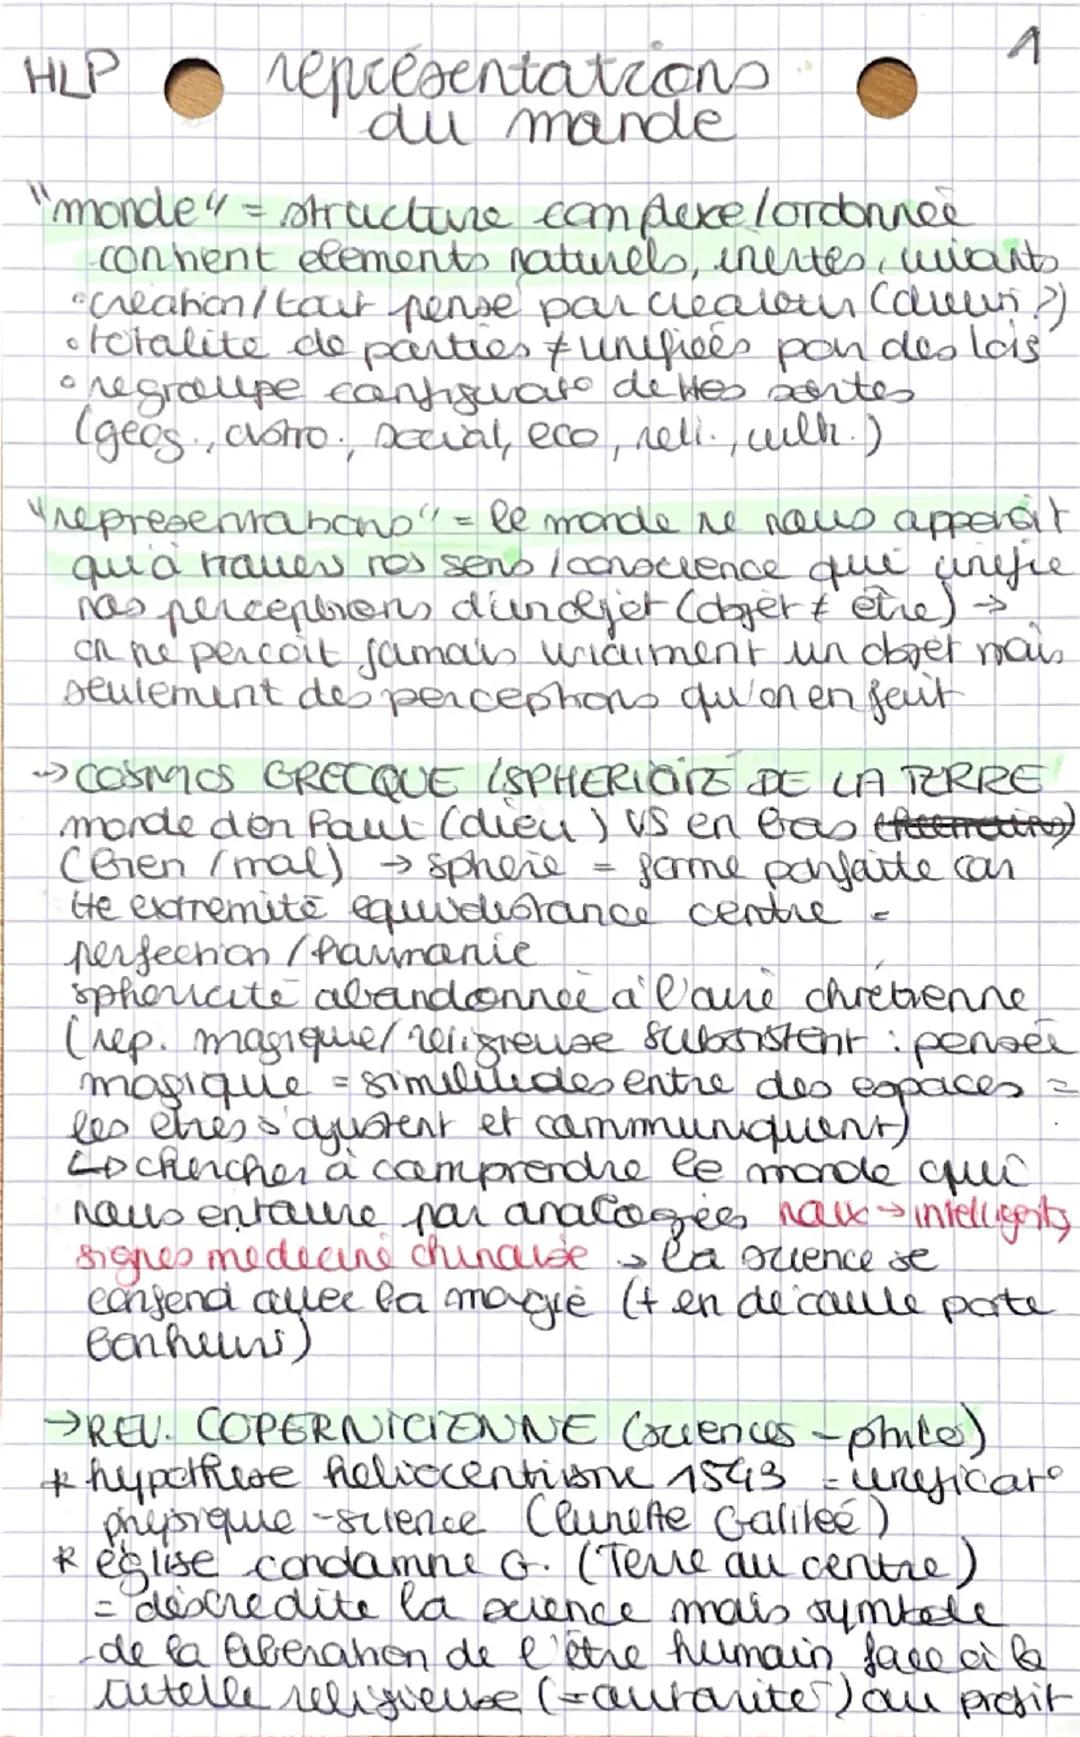 HLP représentations 1
du monde
"monde" = structure complexe/ordonnée
contient elements naturels, inertes, vivants
• creation/tout pensé par createur (dieu ?)
• totalité de parties ≠ unifiées par des lois
• regroupe configurat° de ttes sortes
(géog., astro., social, eco, reli., cult.)
"representations" = le monde ne nous apparait
qu'à travers nos sens/conscience qui unifie
nos perceptions d'un objet (objet ≠ être) →
on ne percoit jamais vraiment un objet mais
seulement des perceptions qu'on en fait
→ COSMOS GRECQUE /SPHERICITÉ DE LA TERRE
monde d'en haut (dieu) VS en bas
(bien/mal) → sphere = forme parfaite car
tte extremité equidistance centre =
perfection/harmonie
sphericité abandonnée à l'aire chrétienne
(rep. magique/religieuse subsistent : pensée
magique = similitudes entre des espaces =
les etres s'ajustent et communiquent)
↳ chercher à comprendre le monde qui
nous entoure par analogies noix → intelligents,
signes medecine chinoise → la science se
confond avec la magie (+ en decoule porte
bonheurs)
→ REV. COPERNICIENNE (sciences - philo)
* hypothese heliocentisme 1543 = unificat°
physique - science (lunette Galilée)
* eglise condamne G. (Terre au centre)
= discredite la science mais symbole
de la liberation de l'être humain face à la
tutelle religieuse (= autorité) au profit